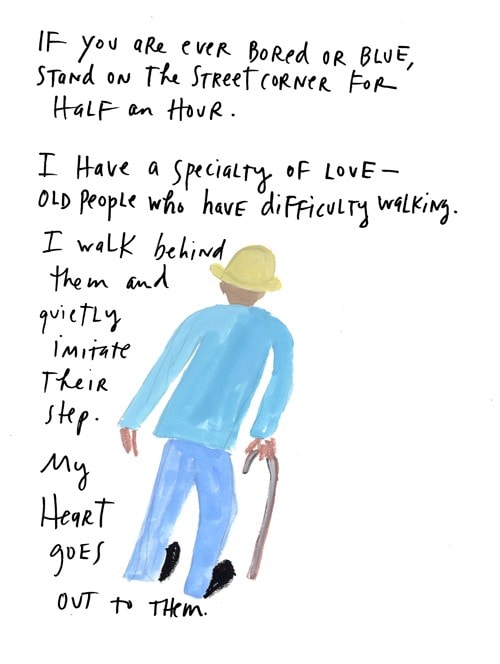 IF You aRe eveR BoRed oR BLUE,
STaNd oN The STReeT CoRNeR FoR
HaLF an HouR.
I Have a SpeciaLTy oF LovE —
OLD PeopLe who havE diFFicuLTy waLKiNg.
I waLK behiNd
them and
quietLy
iMitate
TheiR
Step.
My
HeaRT
goES
OUT to THem.